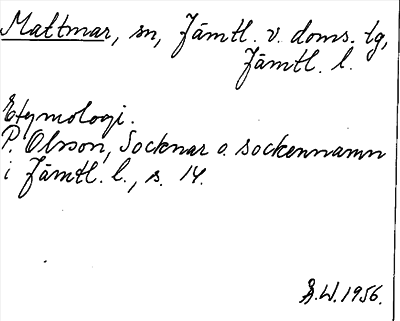 Mattmar, sn, Jämtl. v. doms. tg,
Jämtl. l.
Etymologi.
P. Olsson, Socknar o. sockennamn
i Jämtl. l., s. 14.
A.W. 1956.